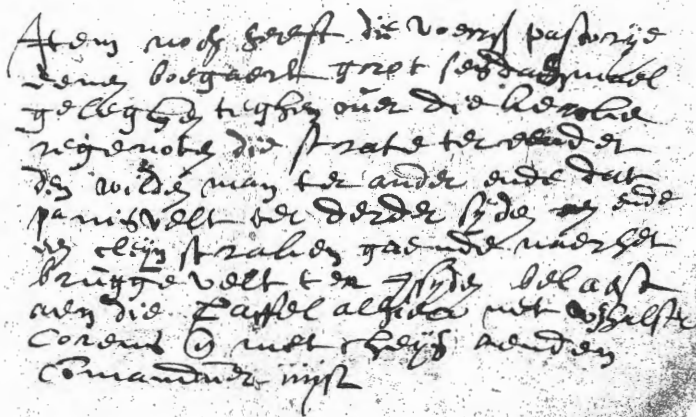 Item noch heeft die voers pastorije
eenen boegaert groet ses dachmael
geleghen teghen over die kercke
regenoten die strate ter eender
den wilden man ter ander ende dat
panisvelt ter derder syden ende
een cleyn straken gaende naer het
brugge velt ter syden belast
aen die taffel alhier met halster
Corens met cheys aenden
Comanduer